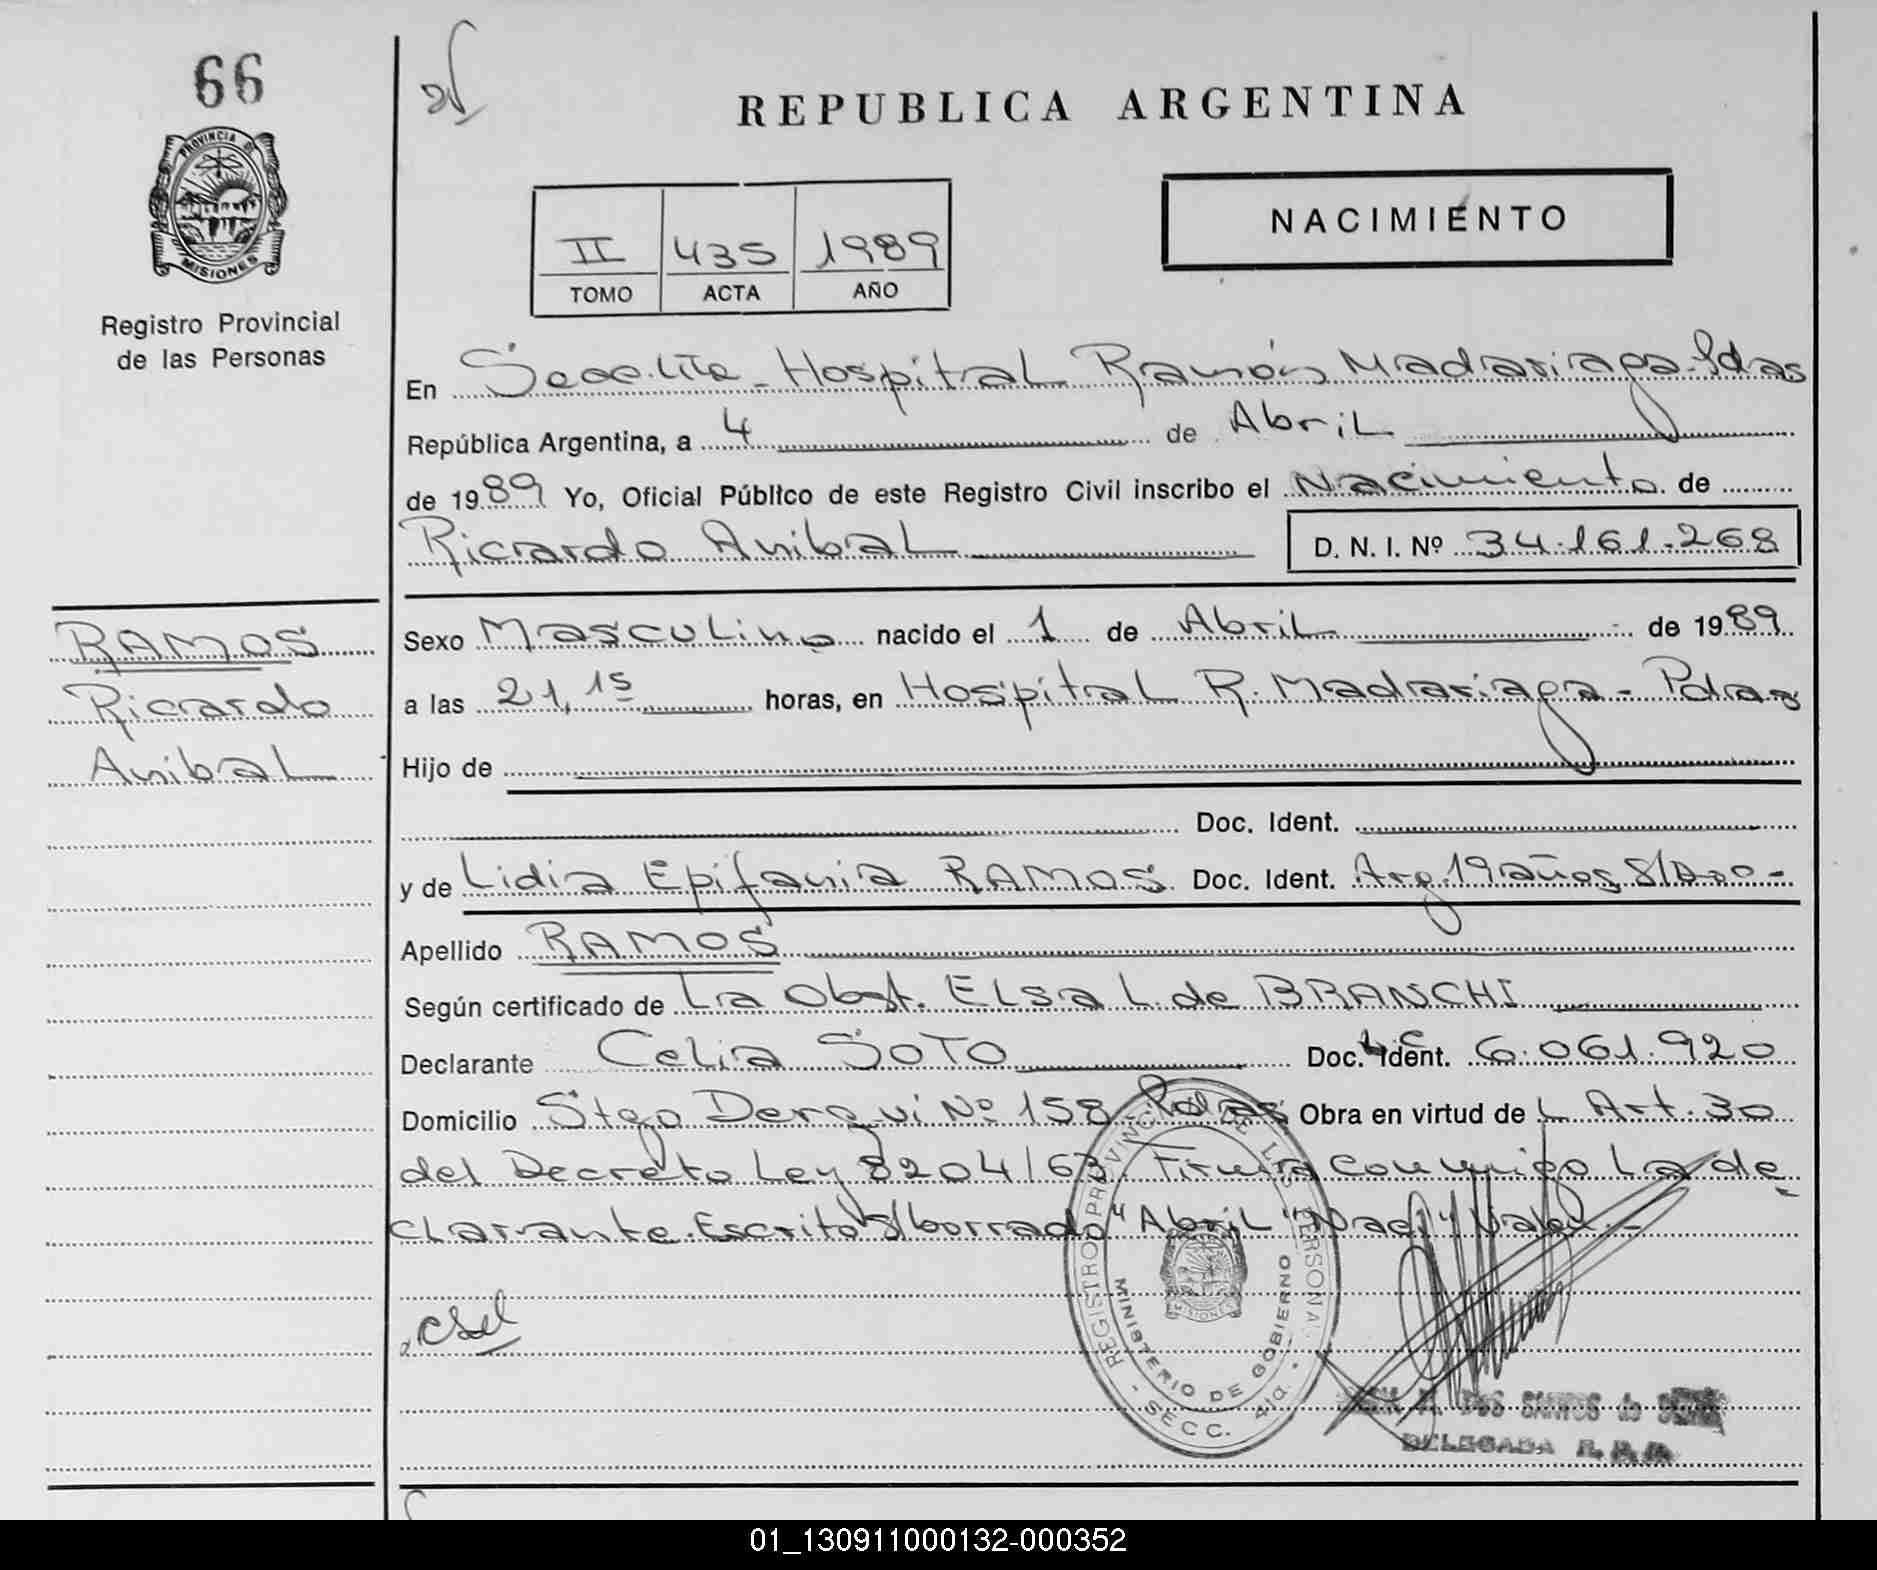 66
REPUBLICA ARGENTINA
PROVINCIA DE
MISIONES
Registro Provincial
de las Personas
II 435 1989
TOMO ACTA AÑO
NACIMIENTO
En Secc. 4ta - Hospital Ramón Madariaga - Pdas
República Argentina, a 4 de Abril
de 1989 Yo, Oficial Público de este Registro Civil inscribo el Nacimiento de
Ricardo Anibal D. N. I. Nº 34.161.268
RAMOS
Ricardo
Anibal
Sexo Masculino nacido el 1 de Abril de 1989
a las 21,15 horas, en Hospital R. Madariaga - Pdas
Hijo de
Doc. Ident.
y de Lidia Epifania RAMOS Doc. Ident. Arg. 19 años S/Doc -
Apellido RAMOS
Según certificado de La Obst. Elsa L. de BRANCHI
Declarante Celia SOTO Doc. Ident. LC 6.061.920
Domicilio Stgo Derqui Nº 158 - Pdas Obra en virtud del Art. 30
del Decreto Ley 8204/63. Firma conmigo la de-
clarante. Escrito s/borrado "Abril" "Naci" Vale. -
REGISTRO PROVINCIAL DE LAS PERSONAS
MINISTERIO DE GOBIERNO
MISIONES
- SECC. 4ta. -
DOS SANTOS de
DELEGADA R. P. P.
01_130911000132-000352